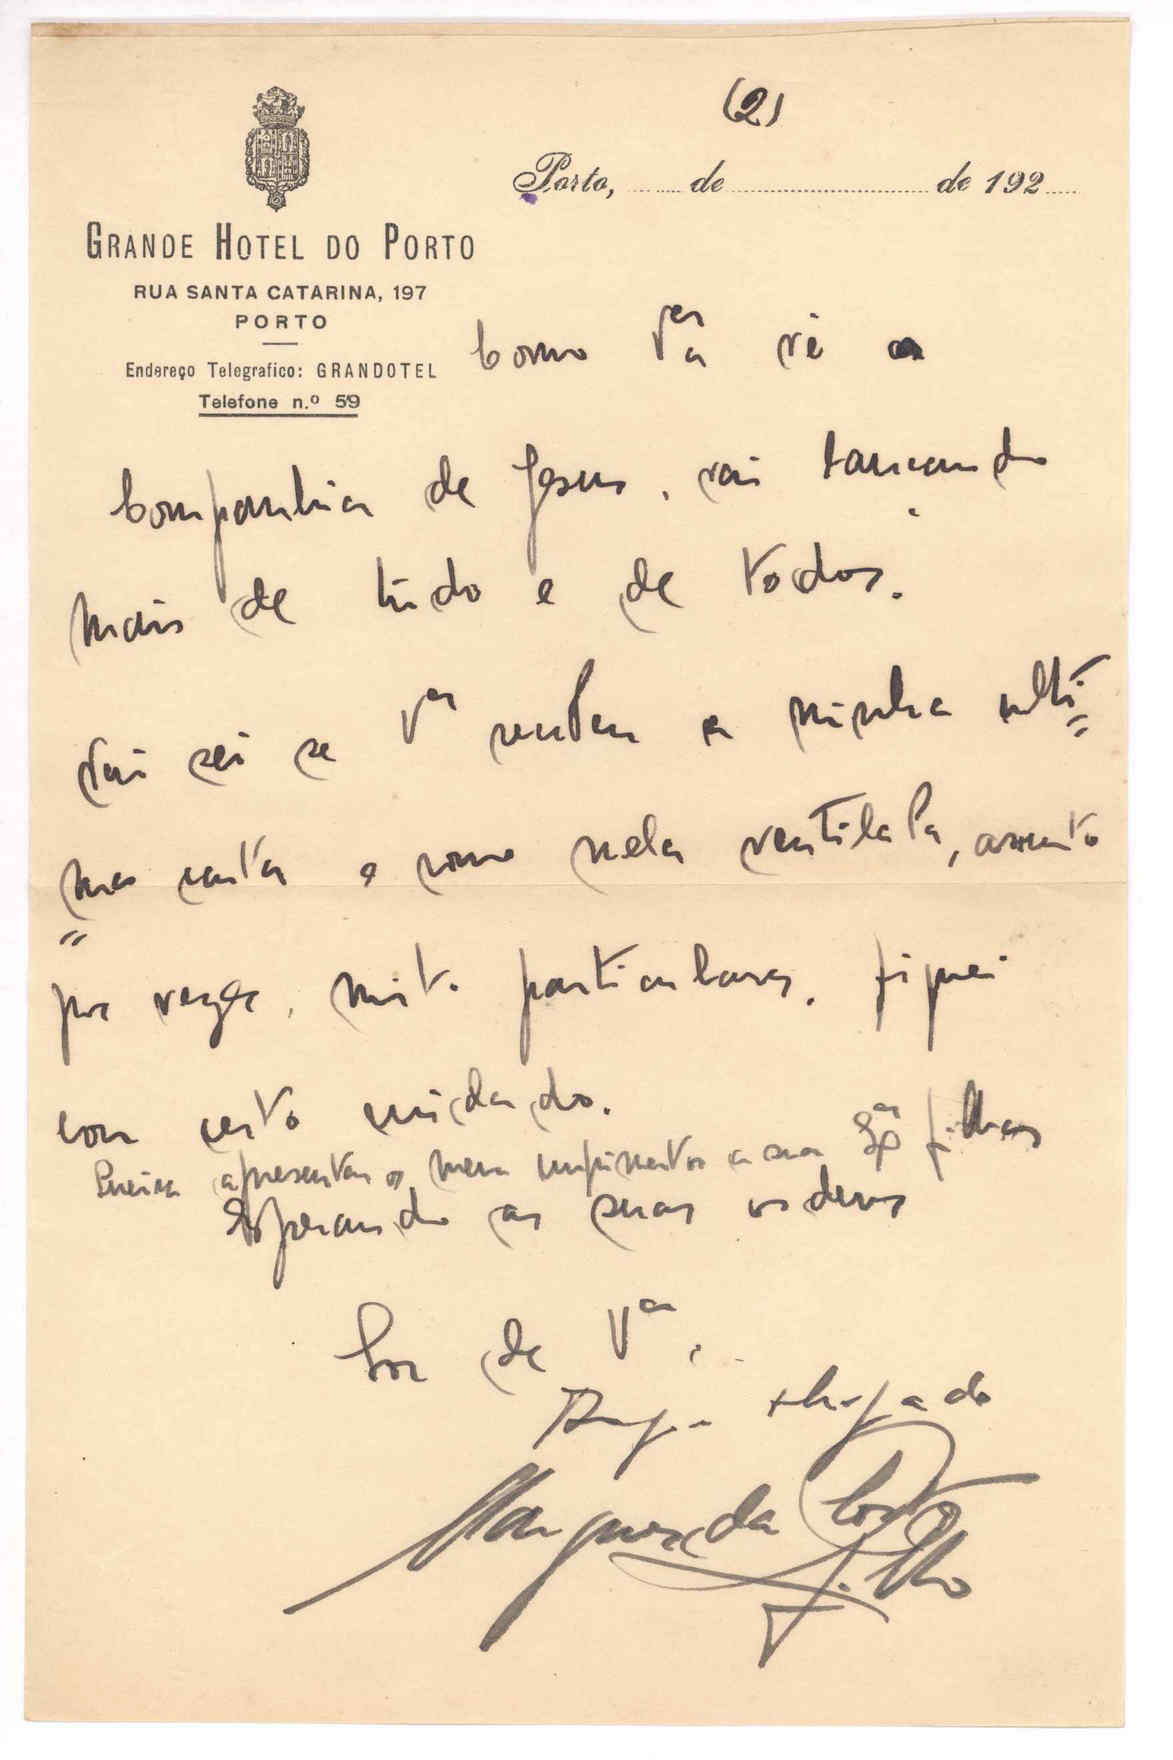 (2)
Porto, ........ de .............................. de 192.....
GRANDE HOTEL DO PORTO
RUA SANTA CATARINA, 197
PORTO
Endereço Telegrafico: GRANDOTEL
Telefone n.º 59
Como V.ª vê a
Companhia de Jesus, vai
mais de tudo e de todos.
sei se V.ª a minha ulti=
=ma carta e como nela ventilava, assunto
por vezes, mt.º particulares, fiquei
com certo cuidado.
Queira apresentar os meus cumprimentos a sua filhas
Esperando as suas ordens
Sou de V.ª
Obrigado
Marques da Costa
Filho